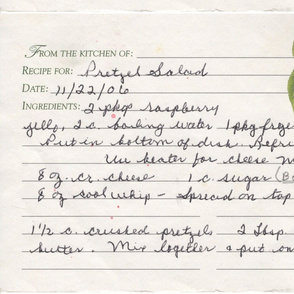 FROM THE KITCHEN OF:
RECIPE FOR: Pretzel Salad
DATE: 11/22/06
INGREDIENTS: 2 pkgs raspberry
jello, 2 c. boiling water 1 pkg froz
Put in bottom of dish. Refri
Use beater for cheese m
8 oz. cr. cheese 1 c. sugar
8 oz cool whip - Spread on top
1 1/2 c. crushed pretzels 2 Tbsp.
butter. Mix together & put on